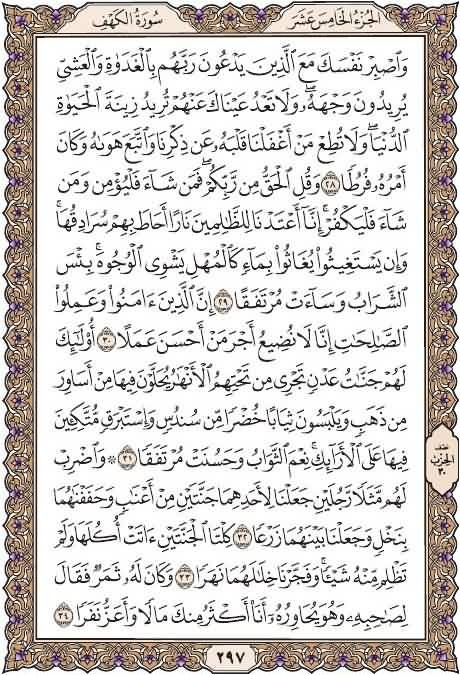 سُورَةُ الكَهْفِ الجُزْءُ الخَامِسَ عَشَرَ
وَٱصْبِرْ نَفْسَكَ مَعَ ٱلَّذِينَ يَدْعُونَ رَبَّهُم بِٱلْغَدَوٰةِ وَٱلْعَشِيِّ
يُرِيدُونَ وَجْهَهُۥ ۖ وَلَا تَعْدُ عَيْنَاكَ عَنْهُمْ تُرِيدُ زِينَةَ ٱلْحَيَوٰةِ
ٱلدُّنْيَا ۖ وَلَا تُطِعْ مَنْ أَغْفَلْنَا قَلْبَهُۥ عَن ذِكْرِنَا وَٱتَّبَعَ هَوَىٰهُ وَكَانَ
أَمْرُهُۥ فُرُطًا ٢٨ وَقُلِ ٱلْحَقُّ مِن رَّبِّكُمْ ۖ فَمَن شَآءَ فَلْيُؤْمِن وَمَن
شَآءَ فَلْيَكْفُرْ ۚ إِنَّآ أَعْتَدْنَا لِلظَّـٰلِمِينَ نَارًا أَحَاطَ بِهِمْ سُرَادِقُهَا ۚ
وَإِن يَسْتَغِيثُوا۟ يُغَاثُوا۟ بِمَآءٍ كَٱلْمُهْلِ يَشْوِى ٱلْوُجُوهَ ۚ بِئْسَ
ٱلشَّرَابُ وَسَآءَتْ مُرْتَفَقًا ٢٩ إِنَّ ٱلَّذِينَ ءَامَنُوا۟ وَعَمِلُوا۟
ٱلصَّـٰلِحَـٰتِ إِنَّا لَا نُضِيعُ أَجْرَ مَنْ أَحْسَنَ عَمَلًا ٣٠ أُو۟لَـٰٓئِكَ
لَهُمْ جَنَّـٰتُ عَدْنٍ تَجْرِى مِن تَحْتِهِمُ ٱلْأَنْهَـٰرُ يُحَلَّوْنَ فِيهَا مِنْ أَسَاوِرَ
مِن ذَهَبٍ وَيَلْبَسُونَ ثِيَابًا خُضْرًا مِّن سُندُسٍ وَإِسْتَبْرَقٍ مُّتَّكِـِٔينَ
فِيهَا عَلَى ٱلْأَرَآئِكِ ۚ نِعْمَ ٱلثَّوَابُ وَحَسُنَتْ مُرْتَفَقًا ٣١ ۞ وَٱضْرِبْ
لَهُم مَّثَلًا رَّجُلَيْنِ جَعَلْنَا لِأَحَدِهِمَا جَنَّتَيْنِ مِنْ أَعْنَـٰبٍ وَحَفَفْنَـٰهُمَا
بِنَخْلٍ وَجَعَلْنَا بَيْنَهُمَا زَرْعًا ٣٢ كِلْتَا ٱلْجَنَّتَيْنِ ءَاتَتْ أُكُلَهَا وَلَمْ
تَظْلِم مِّنْهُ شَيْـًٔا ۚ وَفَجَّرْنَا خِلَـٰلَهُمَا نَهَرًا ٣٣ وَكَانَ لَهُۥ ثَمَرٌ فَقَالَ
لِصَـٰحِبِهِۦ وَهُوَ يُحَاوِرُهُۥٓ أَنَا۠ أَكْثَرُ مِنكَ مَالًا وَأَعَزُّ نَفَرًا ٣٤
نصف
الحزب
٣٠
٢٩٧